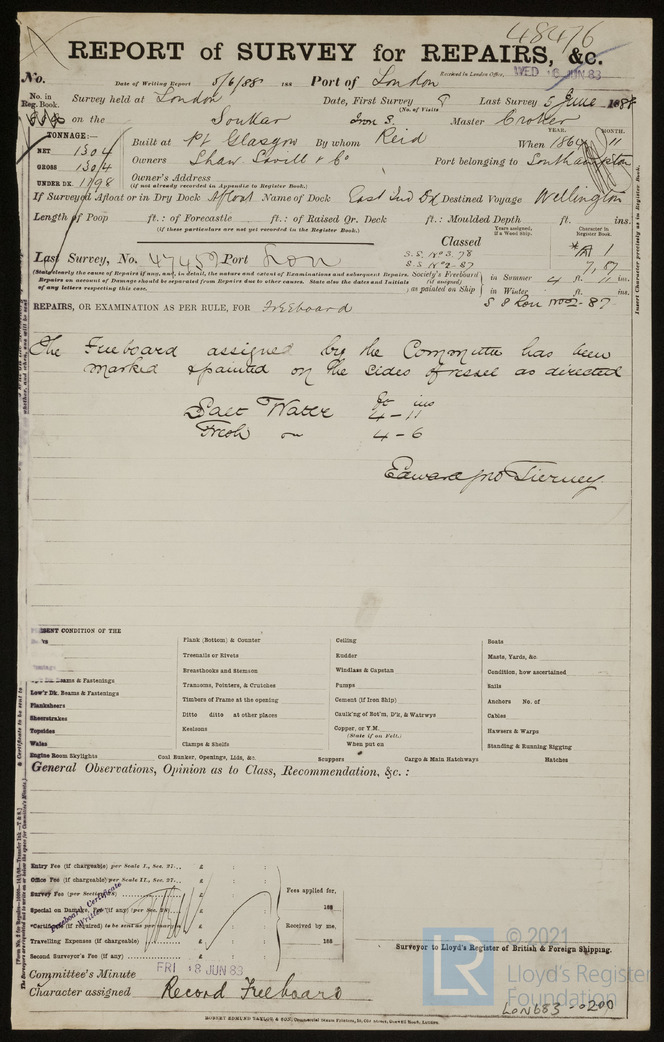 48476
REPORT of SURVEY for REPAIRS, &c.
No. Date of Writing Report 5/6/88 188 Port of London Received in London Office, WED 6 JUN 83
No. in Reg. Book. Survey held at London Date, First Survey Last Survey 5 June 1888
(No. of Visits)
on the Soukar Iron S. Master Croker
TONNAGE:— YEAR. MONTH.
NET 1304 Built at Pt Glasgow By whom Reid When 1864 11
GROSS 1304 Owners Shaw Savill & Co Port belonging to Southampton
UNDER DK. 1198 Owner's Address
(if not already recorded in Appendix to Register Book.)
If Surveyed Afloat or in Dry Dock Afloat Name of Dock East Ind Ex Destined Voyage Wellington
Length of Poop ft.: of Forecastle ft.: of Raised Qr. Deck ft.: Moulded Depth ft. ins.
(if these particulars are not yet recorded in the Register Book.) Years assigned, if a Wood Ship. Character in Register Book.
Classed *A 1
Last Survey, No. 47457 Port Lon S.S. No 3. 78 7,87
S.S No 2-87
(State clearly the cause of Repairs if any, and, in detail, the nature and extent of Examinations and subsequent Repairs.
Repairs on account of Damage should be separated from Repairs due to other causes. State also the dates and Initials
of any letters respecting this case.
Society's Freeboard (if assigned) as painted on Ship in Summer 4 ft. 11 ins.
in Winter ft. ins.
REPAIRS, OR EXAMINATION AS PER RULE, FOR Freeboard S S Lon No 2-87
The Freeboard assigned by the Committee has been
marked & painted on the sides of vessel as directed
ft ins
Salt Water 4-11
Fresh do 4-6
Edward Jno Tierney
PRESENT CONDITION OF THE
Plank (Bottom) & Counter Ceiling Boats
Treenails or Rivets Rudder Masts, Yards, &c.
Breasthooks and Stemson Windlass & Capstan Condition, how ascertained
Dk. Beams & Fastenings Transoms, Pointers, & Crutches Pumps Sails
Low'r Dk. Beams & Fastenings Timbers of Frame at the opening Cement (if Iron Ship) Anchors No. of
Planksheers Ditto ditto at other places Caulk'ng of Bot'm, D'k, & Watrwys Cables
Sheerstrakes
Topsides Keelsons Copper, or Y.M. Hawsers & Warps
(State if on Felt.)
Wales Clamps & Shelfs When put on Standing & Running Rigging
Engine Room Skylights Coal Bunker, Openings, Lids, &c. Scuppers Cargo & Main Hatchways Hatches
General Observations, Opinion as to Class, Recommendation, &c. :
Entry Fee (if chargeable) per Scale I., Sec. 27. £ : :
Office Fee (if chargeable) per Scale II., Sec. 27. £ : :
Survey Fee (per Section) £ : : Fees applied for,
Special on Damage Fee (if any) (per Sec. 28) £ : : 188
*Certificate (if required) to be sent as per margin £ : : Received by me,
Travelling Expenses (if chargeable) £ : : 188
Second Surveyor's Fee (if any) £ : :
Freeboard Certificate Written
Surveyor to Lloyd's Register of British & Foreign Shipping.
Committee's Minute FRI 8 JUN 83
Character assigned Record Freeboard
LR
© 2021
Lloyd's Register
Foundation
LON683-0200
ROBERT EDMUND TAYLOR & SON, Commercial Steam Printers, 19, Old Street, Goswell Road, London.
Insert Character precisely as in Register Book.